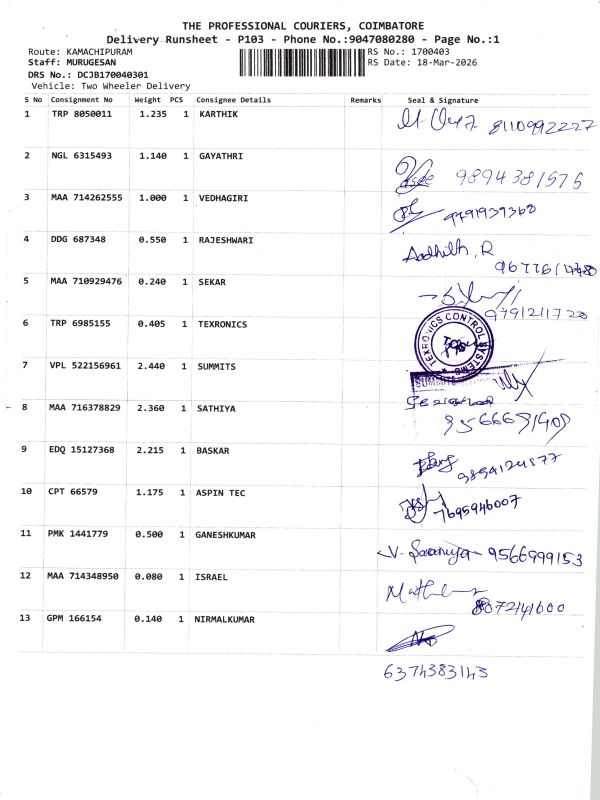 THE PROFESSIONAL COURIERS, COIMBATORE
Delivery Runsheet - P103 - Phone No.:9047080280 - Page No.:1
Route: KAMACHIPURAM
RS No.: 1700403
Staff: MURUGESAN
RS Date: 18-Mar-2026
DRS No.: DCJB170040301
Vehicle: Two Wheeler Delivery
S No Consignment No Weight PCS Consignee Details Remarks Seal & Signature
1 TRP 8050011 1.235 1 KARTHIK 8110992227
2 NGL 6315493 1.140 1 GAYATHRI 9894381575
3 MAA 714262555 1.000 1 VEDHAGIRI 9791939360
4 DDG 687348 0.550 1 RAJESHWARI Aadhith, R
5 MAA 710929476 0.240 1 SEKAR
9791211720
6 TRP 6985155 0.405 1 TEXRONICS TEXRONICS CONTROL SYSTEMS
7 VPL 522156961 2.440 1 SUMMITS
8 MAA 716378829 2.360 1 SATHIYA
9 EDQ 15127368 2.215 1 BASKAR
10 CPT 66579 1.175 1 ASPIN TEC 7695946007
11 PMK 1441779 0.500 1 GANESHKUMAR V. Saranya 9566999153
12 MAA 714348950 0.080 1 ISRAEL
13 GPM 166154 0.140 1 NIRMALKUMAR
6374383143